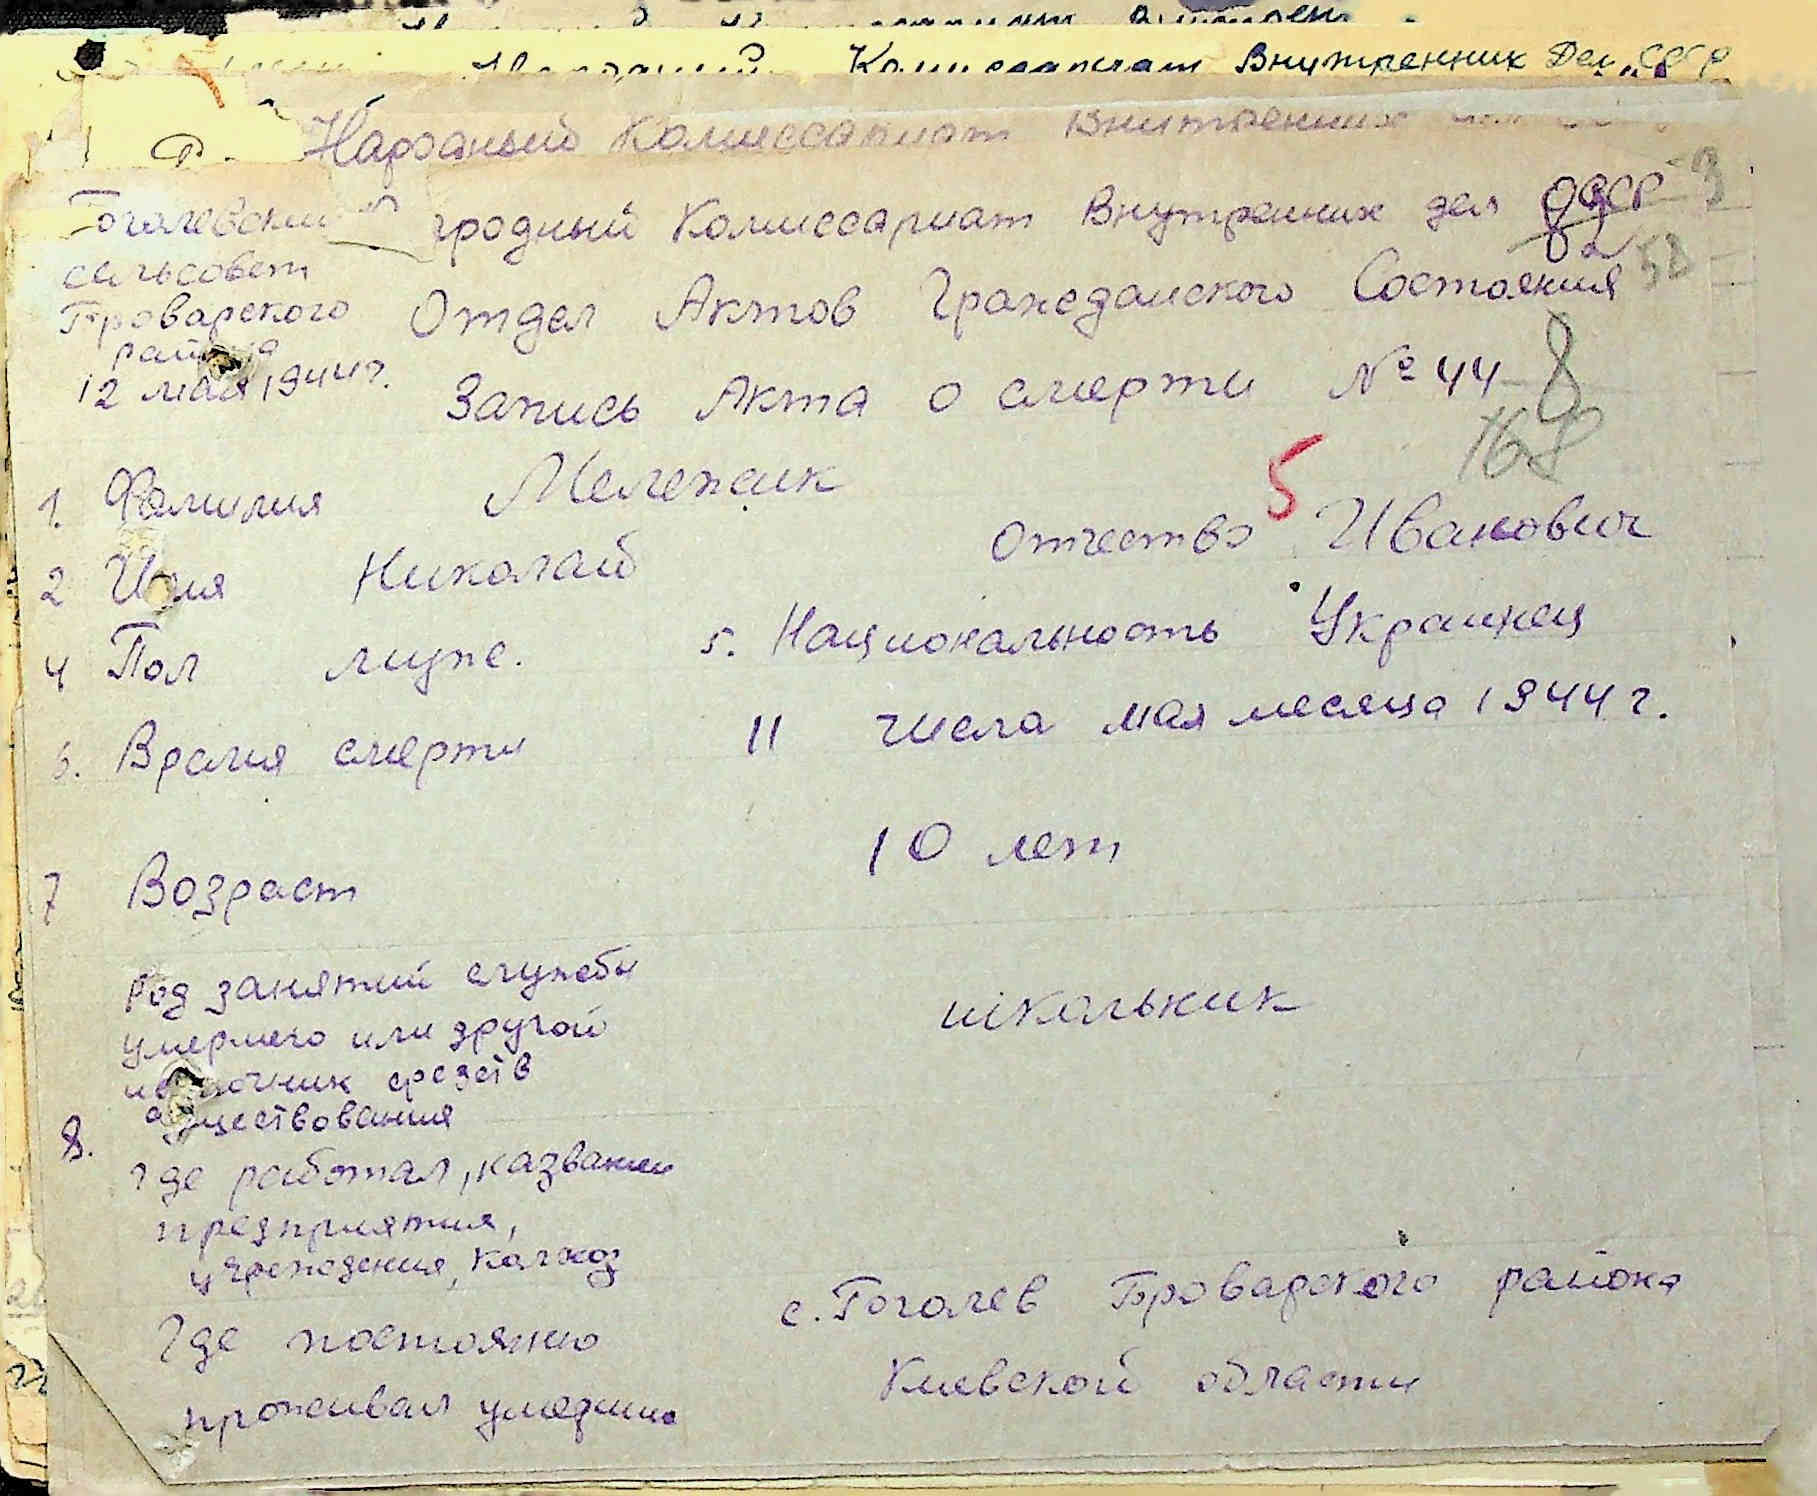 Комиссариат Внутренних Дел СССР
Народный Комиссариат Внутренних
Гоголевский родный Комиссариат Внутренних дел
сельсовет
Броварского Отдел Актов Гражданского Состояния 52
района
12 мая 1944 г. Запись Акта о смерти № 44 8
168
5
1. Фамилия Мележик
2 Имя Николай Отчество Иванович
4 Пол муж. 5. Национальность Украинец
6. Время смерти 11 числа мая месяца 1944 г.
7 Возраст 10 лет
Род занятий службы
умершего или другой школьник
источник средств
существования
8.
Где работал, названии
предприятия,
учреждения, колхоз
Где постоянно с. Гоголев Броварского района
проживал умерший Киевской области